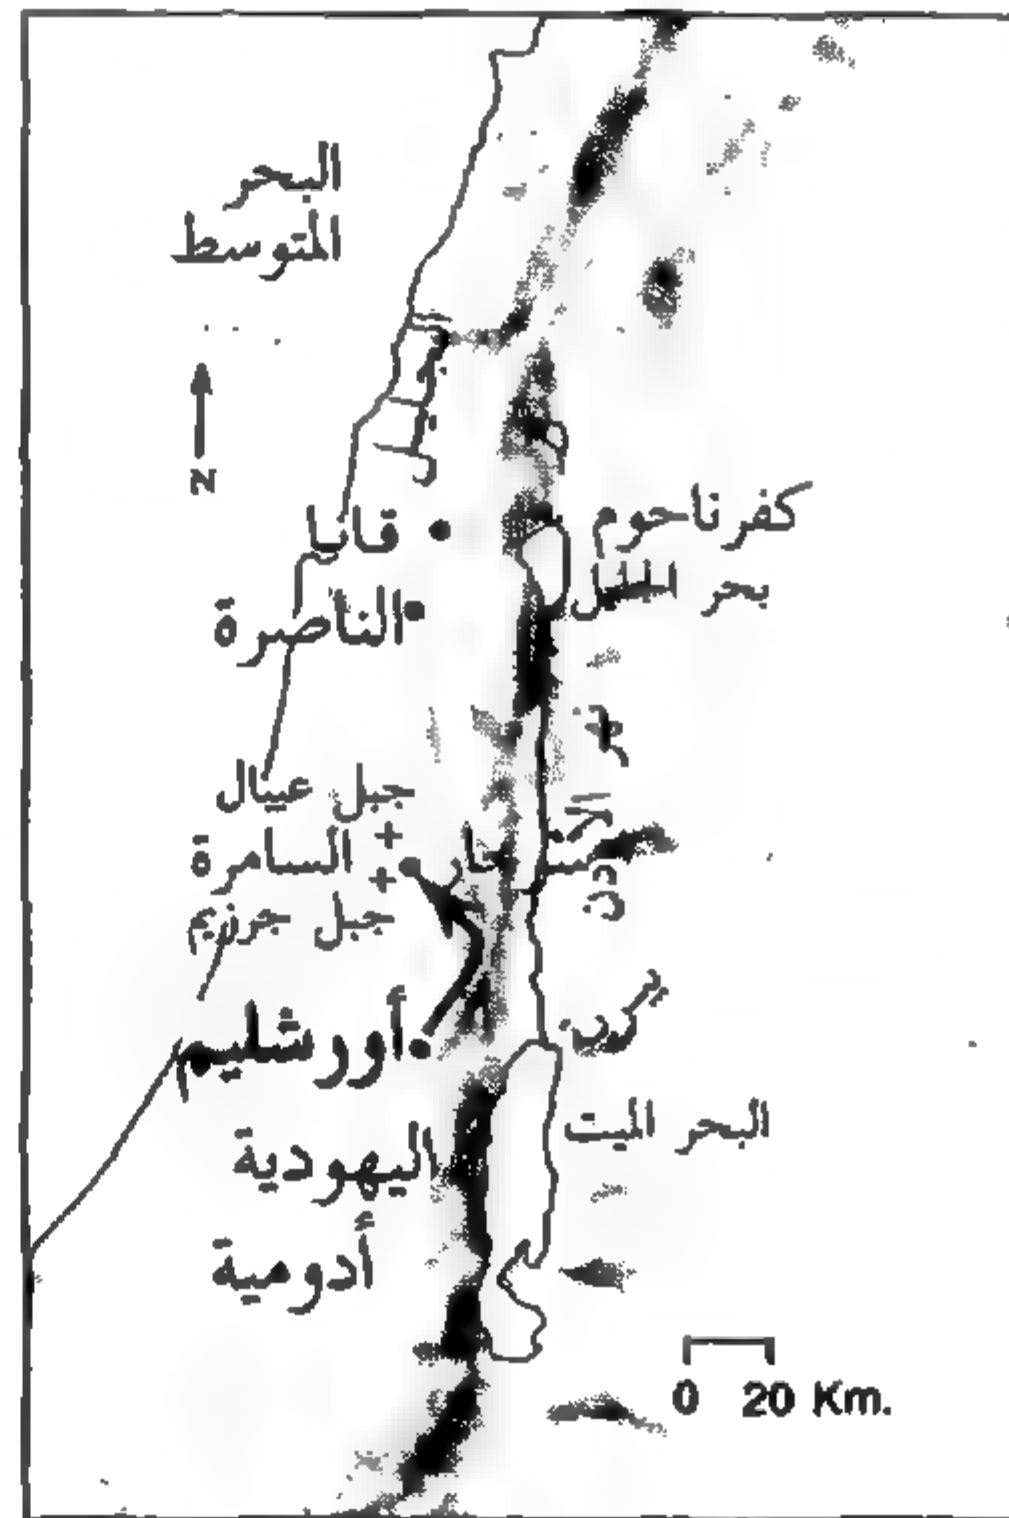 البحر
المتوسط
N
قانا
كفرناحوم
بحر الجليل
الناصرة
جبل عيبال
السامرة
سوخار
جبل جرزيم
أورشليم
البحر الميت
اليهودية
أدومية
0 20 Km.